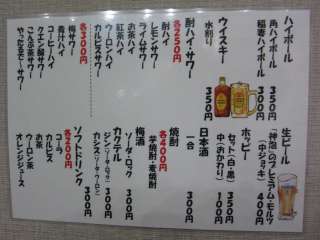 ハイボール
角ハイボール 300円
稲妻ハイボール 350円
ウイスキー
水割り 350円
酎ハイ・サワー
各250円
レモンサワー
ライムサワー
お茶ハイ
紅茶ハイ
ウーロンハイ
カルピスサワー
各300円
梅サワー
青汁ハイ
コーヒーハイ
クエン酸サワー
こんぶ茶サワー
生ビール
「神泡」のプレミアム・モルツ
（中ジョッキ） 400円
ホッピー
セット（白・黒） 350円
中（おかわり）
日本酒
一合 300円
焼酎
各400円
芋焼酎・麦焼酎
梅酒
ソーダ・ロック 300円
カクテル
ジン（ソーダ・ロック） 300円
カシス（ソーダ・ウーロン） 300円
ソフトドリンク
各200円
コーラ
カルピス
お茶
ウーロン茶
オレンジジュース